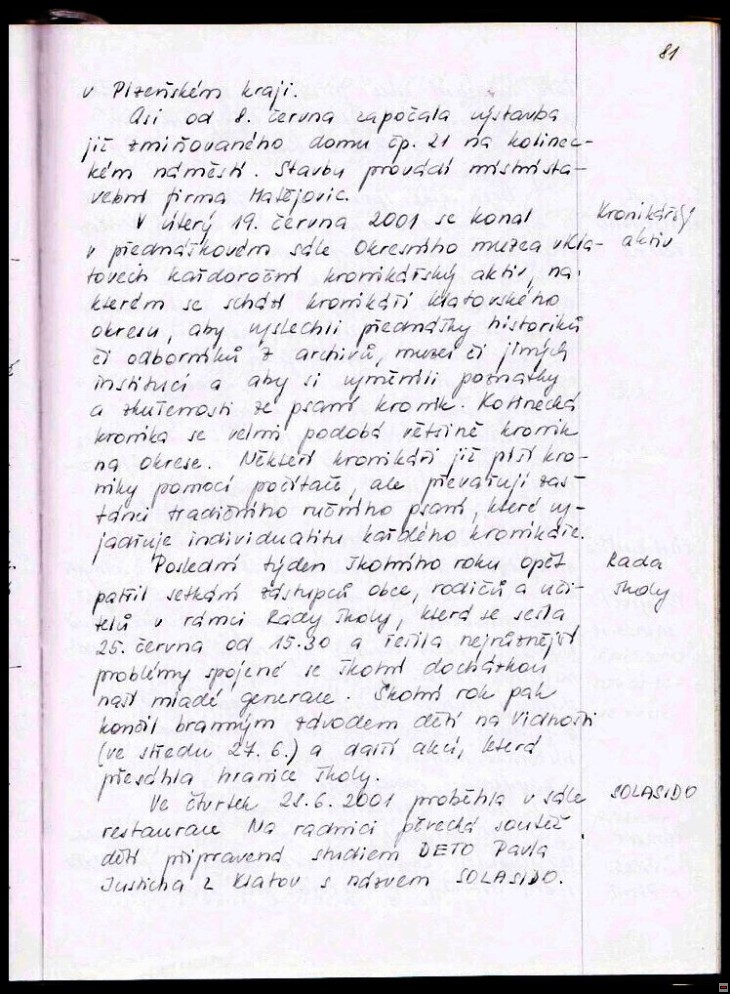 81
v Plzeňském kraji.
Asi od 8. června započala výstavba
již zmiňovaného domu čp. 21 na kolinec-
kém náměstí. Stavbu provádí místní sta-
vební firma Matějovic.
V úterý 19. června 2001 se konal
Kronikářský
v přednáškovém sále Okresního muzea v Kla-
aktiv
tovech každoroční kronikářský aktiv, na
kterém se schází kronikáři klatovského
okresu, aby vyslechli přednášky historiků
či odborníků z archivů, muzeí či jiných
institucí a aby si vyměnili poznatky
a zkušenosti ze psaní kronik. Kolinecká
kronika se velmi podobá většině kronik
na okrese. Někteří kronikáři již píší kro-
niky pomocí počítače, ale převažují zas-
tánci tradičního ručního psaní, které vy-
jadřuje individualitu každého kronikáře.
Poslední týden školního roku opět
Rada
patřil setkání zástupců obce, rodičů a uči-
školy
telů v rámci Rady školy, která se sešla
25. června od 15.30 a řešila nejrůznější
problémy spojené se školní docházkou
naší mladé generace. Školní rok pak
končil branným závodem dětí na Vidhošti
(ve středu 27.6.) a další akcí, která
přesáhla hranice školy.
Ve čtvrtek 28.6. 2001 proběhla v sále
SOLASIDO
restaurace Na radnici pěvecká soutěž
dětí připravená studiem DETO Pavla
Justicha z Klatov s názvem SOLASIDO.